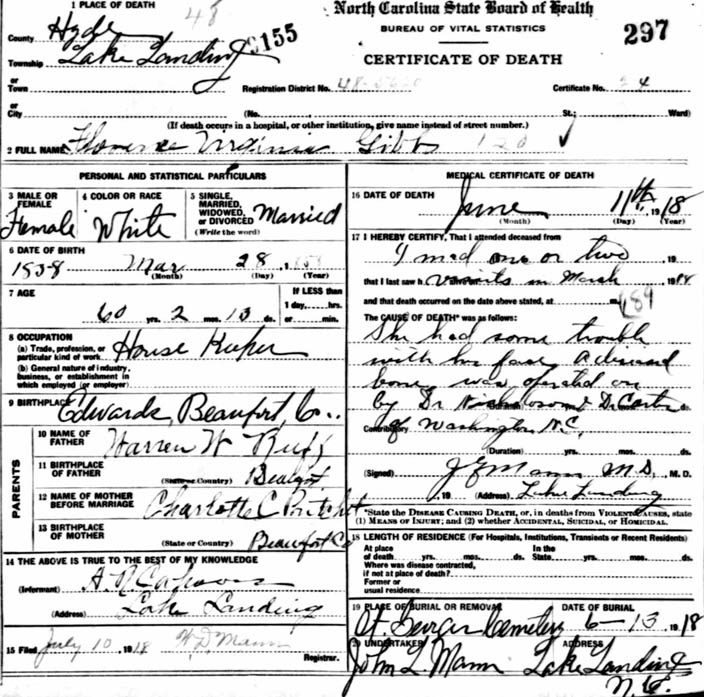 1 PLACE OF DEATH
North Carolina State Board of Health
BUREAU OF VITAL STATISTICS
CERTIFICATE OF DEATH
297
County Hyde
Township Lake Landing
155
or Town
Registration District No. 48-
Certificate No. 34
or City
(No. St.; Ward)
(If death occurs in a hospital, or other institution, give name instead of street number.)
2 FULL NAME Florence Virginia Gibbs
PERSONAL AND STATISTICAL PARTICULARS
3 MALE OR FEMALE Female
4 COLOR OR RACE White
5 SINGLE, MARRIED, WIDOWED, or DIVORCED Married
(Write the word)
6 DATE OF BIRTH
1858 Mar 28
(Month) (Day) (Year)
7 AGE
60 yrs. 2 mos. 13 ds.
IF LESS than
1 day, hrs.
or min.
8 OCCUPATION
(a) Trade, profession, or particular kind of work House Keeper
(b) General nature of industry, business, or establishment in which employed (or employer)
9 BIRTHPLACE Edwards, Beaufort Co.
PARENTS
10 NAME OF FATHER Warren W
11 BIRTHPLACE OF FATHER
(State or Country)
12 NAME OF MOTHER BEFORE MARRIAGE Charlotte C
13 BIRTHPLACE OF MOTHER
(State or Country) Beaufort Co
14 THE ABOVE IS TRUE TO THE BEST OF MY KNOWLEDGE
(Informant)
(Address) Lake Landing
15 Filed July 10, 1918 W D Mann
Registrar.
MEDICAL CERTIFICATE OF DEATH
16 DATE OF DEATH
June 11th, 1918
(Month) (Day) (Year)
17 I HEREBY CERTIFY, That I attended deceased from
I mad one or two 19
that I last saw h visits in March 1918
and that death occurred on the date above stated, at m.
189
The CAUSE OF DEATH* was as follows:
She had some trouble
with her face A diseased
bone was operated on
by Dr Nicholson & Dr Carter
Contributory of Washington N.C.
(Duration) yrs. mos. ds.
(Signed) J E Mann M.D., M. D.
, 19 (Address) Lake Landing
*State the DISEASE CAUSING DEATH, or, in deaths from VIOLENT CAUSES, state
(1) MEANS OF INJURY; and (2) whether ACCIDENTAL, SUICIDAL, or HOMICIDAL.
18 LENGTH OF RESIDENCE (For Hospitals, Institutions, Transients or Recent Residents)
At place of death yrs. mos. ds. In the State yrs. mos. ds.
Where was disease contracted,
if not at place of death?
Former or
usual residence
19 PLACE OF BURIAL OR REMOVAL
DATE OF BURIAL
St. Georges Cemetery 6-13 1918
20 UNDERTAKER
ADDRESS
John L Mann Lake Landing
N.C.